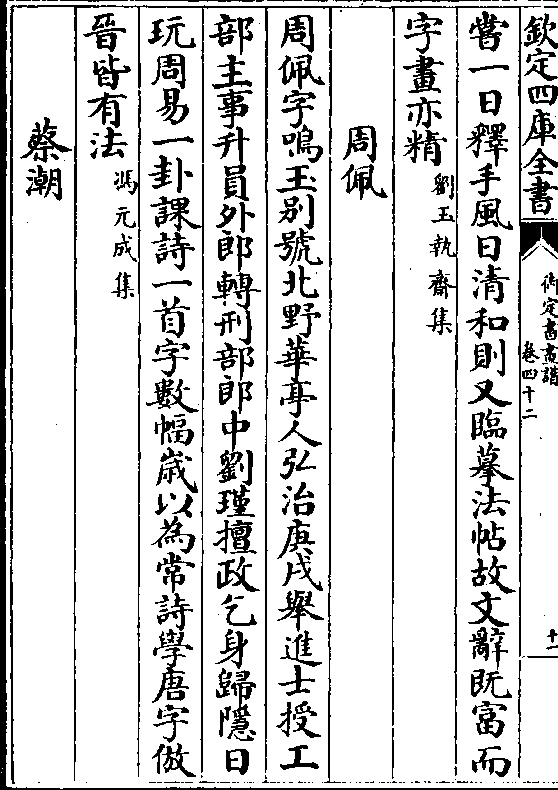 欽定四庫全書
御定書畫譜
卷四十二
十一
嘗一日釋手風日清和則又臨摹法帖故文辭既富而
字畫亦精劉玉執齋集
周佩
周佩字鳴玉别號北野華亭人弘治庚戌舉進士授工
部主事升員外郎轉刑部郎中劉瑾擅政乞身歸隱日
玩周易一卦課詩一首字數幅歲以為常詩學唐字倣
晉皆有法馮元成集
蔡潮